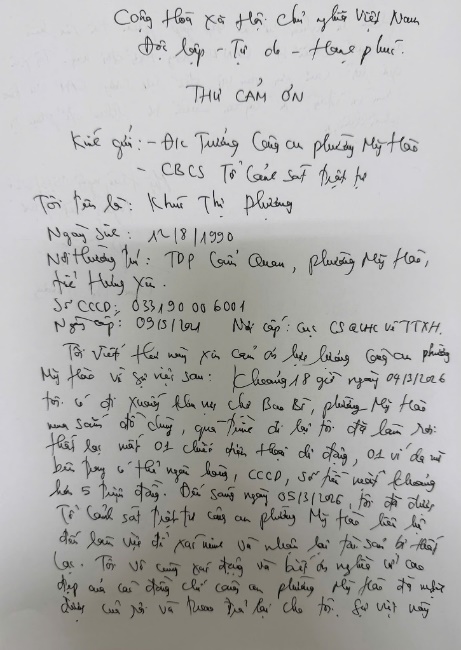 Cộng Hòa xã Hội chủ nghĩa Việt Nam
Độc lập - Tự do - Hạnh phúc.
THƯ CẢM ƠN
Kính gửi: - Đ/c Trưởng Công an phường Mỹ Hào
- CBCS Tổ Cảnh sát trật tự
Tôi tên là: Khúc Thị Phượng
Ngày sinh: 12/8/1990
Nơi thường trú: TDP Quan, phường Mỹ Hào,
tỉnh Hưng Yên.
Số CCCD: 033190006001
Ngày cấp: 09/3/2021 Nơi cấp: cục CS QLHC về TTXH.
Tôi viết thư này xin cảm ơn lực lượng Công an phường
Mỹ Hào về sự việc sau: Khoảng 18 giờ ngày 04/3/2026
tôi có đi xuống khu vực chợ Bao Bì, phường Mỹ Hào
mua sắm đồ dùng, quá trình đi lại tôi đã làm rơi
thất lạc mất 01 chiếc điện thoại di động, 01 ví da
bên trong có thẻ ngân hàng, CCCD, số tiền mặt khoảng
hơn 5 triệu đồng. Đến sáng ngày 05/3/2026, tôi đã được
Tổ Cảnh sát trật tự công an phường Mỹ Hào liên hệ
đến làm việc để xác minh và nhận lại tài sản bị thất
lạc. Tôi vô cùng xúc động và biết ơn nghĩa cử cao
đẹp của các đồng chí công an phường Mỹ Hào đã nhặt
được của rơi và trao trả lại cho tôi. Sự việc này